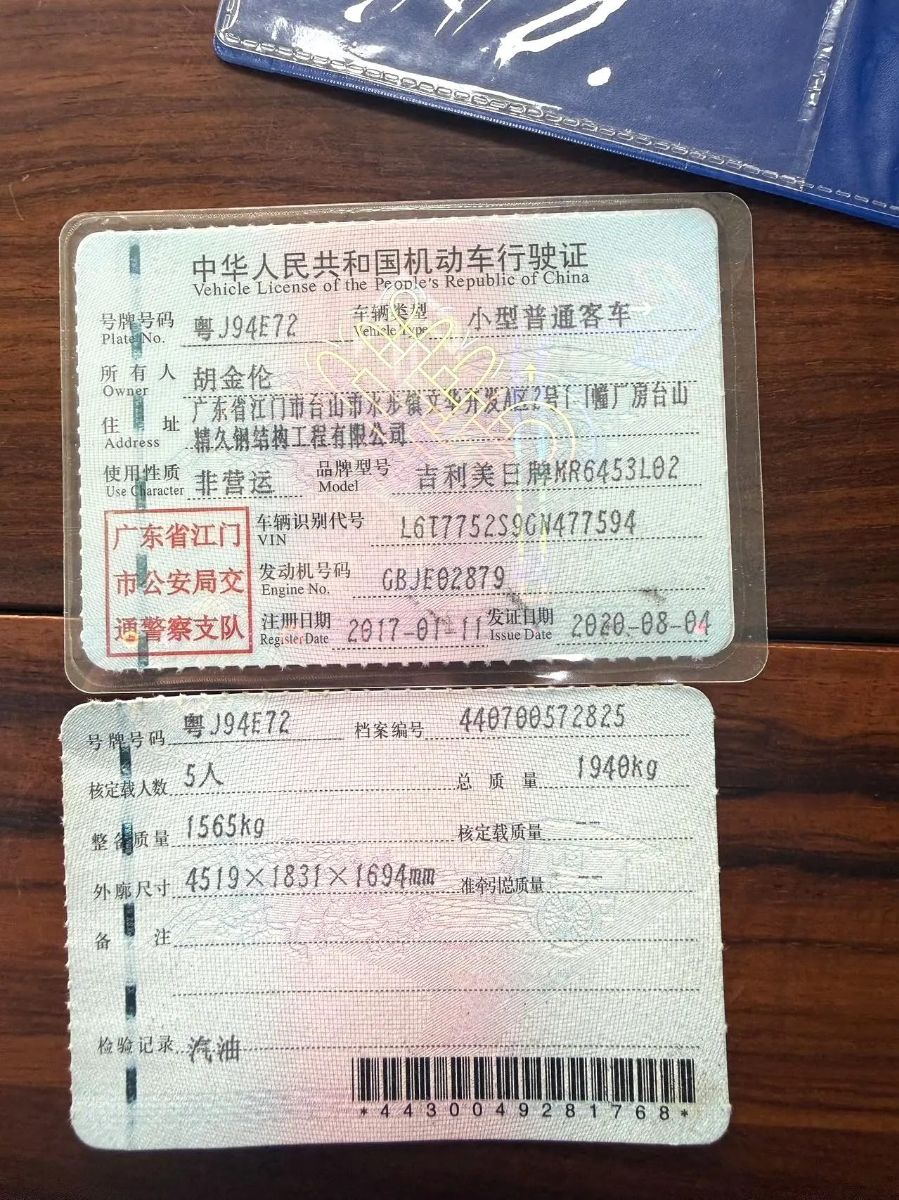 中华人民共和国机动车行驶证
Vehicle License of the People's Republic of China
号牌号码 粤J94E72 车辆类型 小型普通客车
Plate No. Vehicle Type
所有人 胡金伦
Owner
住址 广东省江门市台山市水步镇文华开发A区2号 幢厂房台山
Address 精久钢结构工程有限公司
使用性质 非营运 品牌型号 吉利美日牌MR6453L02
Use Character Model
广东省江门
市公安局交
通警察支队
车辆识别代号 L6T7752S9GN477594
VIN
发动机号码 GBJE02879
Engine No.
注册日期 2017-01-11 发证日期 2020-08-04
Register Date Issue Date
号牌号码 粤J94E72 档案编号 440700572825
核定载人数 5人 总质量 1940kg
整备质量 1565kg 核定载质量 --
外廓尺寸 4519×1831×1694mm 准牵引总质量 --
备注
检验记录 汽油
*4430049281768*